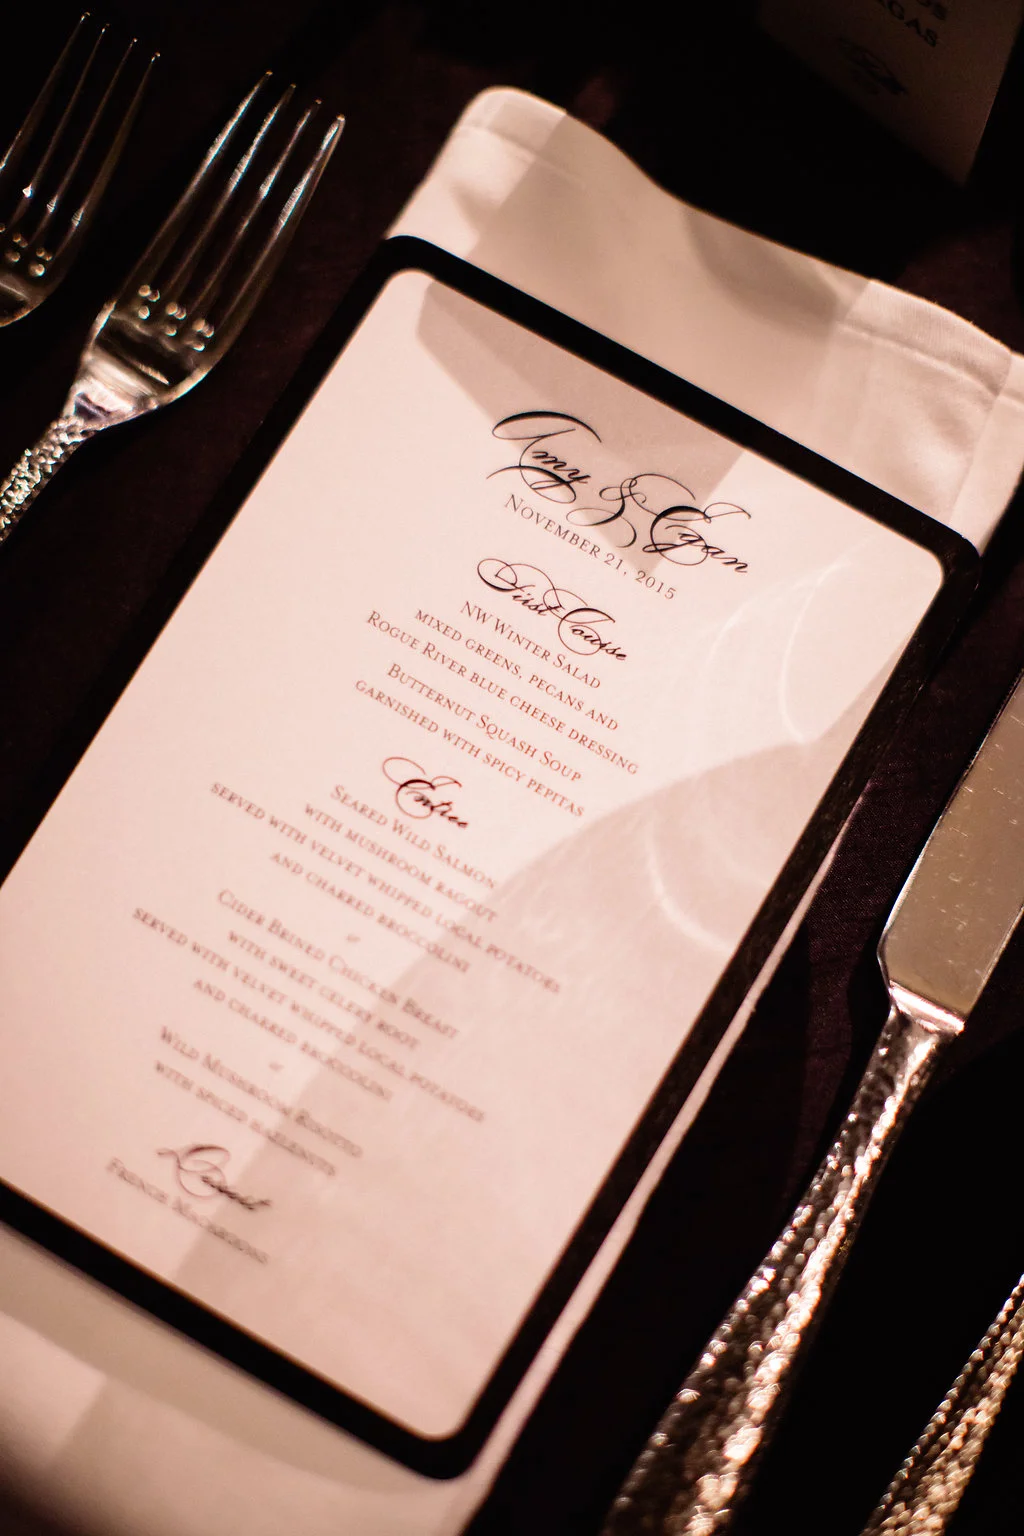 OS
GAS
Amy & Egan
NOVEMBER 21, 2015
First Course
NW WINTER SALAD
MIXED GREENS, PECANS AND
ROGUE RIVER BLUE CHEESE DRESSING
BUTTERNUT SQUASH SOUP
GARNISHED WITH SPICY PEPITAS
Entree
SEARED WILD SALMON
WITH MUSHROOM RAGOUT
SERVED WITH VELVET WHIPPED LOCAL POTATOES
AND CHARRED BROCCOLINI
or
CIDER BRINED CHICKEN BREAST
WITH SWEET CELERY ROOT
SERVED WITH VELVET WHIPPED LOCAL POTATOES
AND CHARRED BROCCOLINI
or
WILD MUSHROOM RISOTTO
WITH SPICED HAZELNUTS
Dessert
FRENCH MACARONS